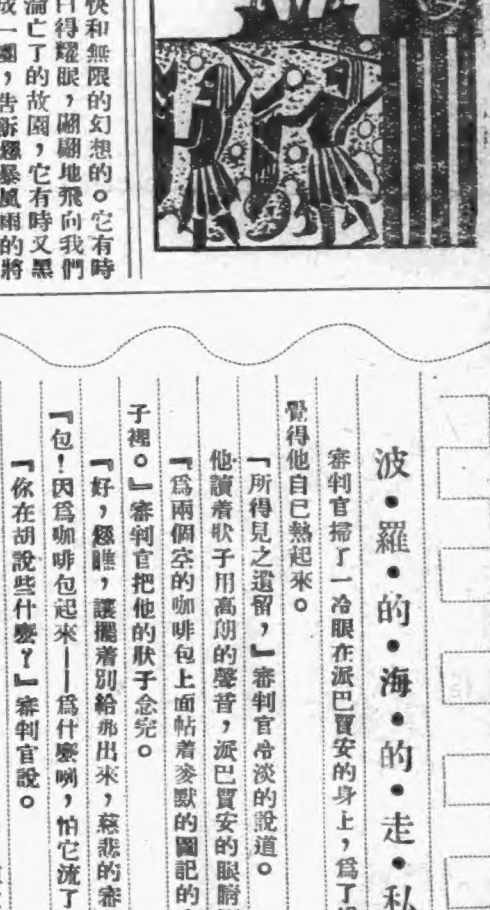 快和無限的幻想的。它有時
得耀眼,翩翩地飛向我們
淪亡了的故園,它有時又黑
成一團,告訴經暴風雨的將
波•羅•的•海•的•走•私
審判官掃了一冷眼在派巴賈安的身上,爲了
覺得他自已熱起來。
『所得見之遺留,』審判官冷淡的說道。
他讀着狀子用高朗的聲音,派巴賈安的眼睛
『爲兩個空的咖啡包上面帖着麥默的圖記的
子裡。』審判官把他的狀子念完。
『好,經瞧,讓擺着別給那出來,慈悲的審
『包!因爲咖啡包起來——爲什麼喲,怕它流了
『你在胡說些什麼?』審判官說。